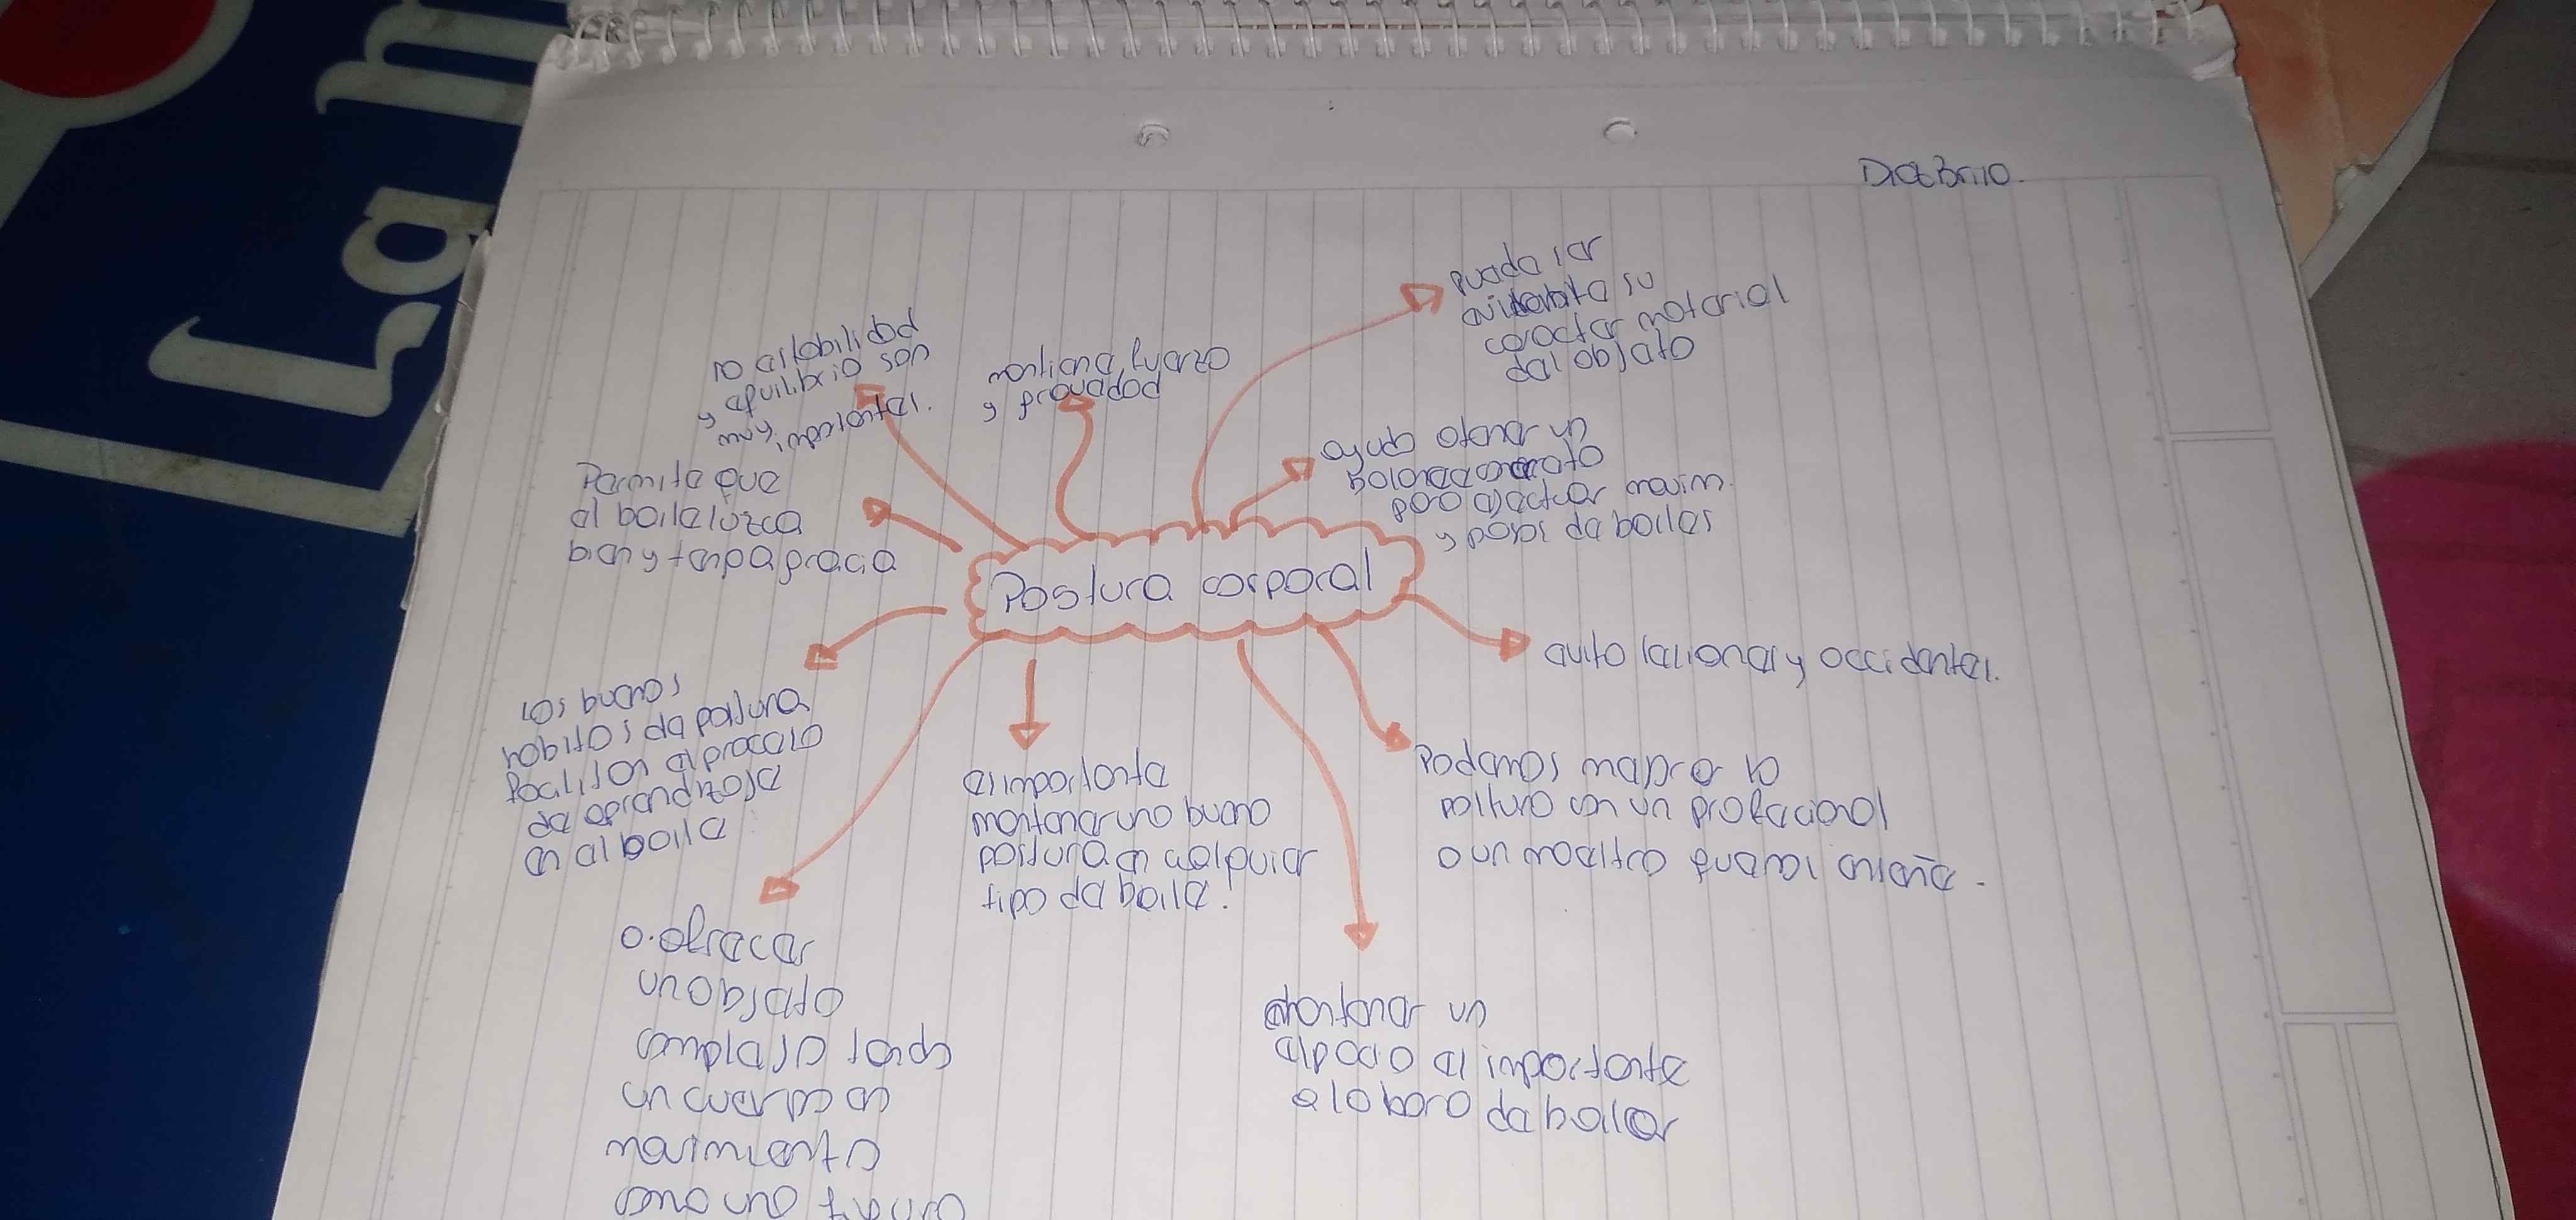 La h
Postura corporal
puede ser
evidente su
caracter material
del objeto
ayuda
otener un
balanceamento
para ejectuar movim.
y pasos de bailes
evita lesiones y occidentes.
Podemos
la
postura con un profecional
o un maestro
enseñe.
mantener un
espacio es importante
a la hora de bailar
es importante
mantener una buena
postura en cualquier
tipo de baile.
o. ofrecer
un objeto
complejo
un cuerpo en
movimiento
como una figura
los buenos
habitos de postura
facilitan el proceso
de aprendizaje
en el baile
Permite que
el baile luzca
bien y tenga gracia
la estabilidad
y equilibrio son
muy importantes.
mantiene fuerza
y